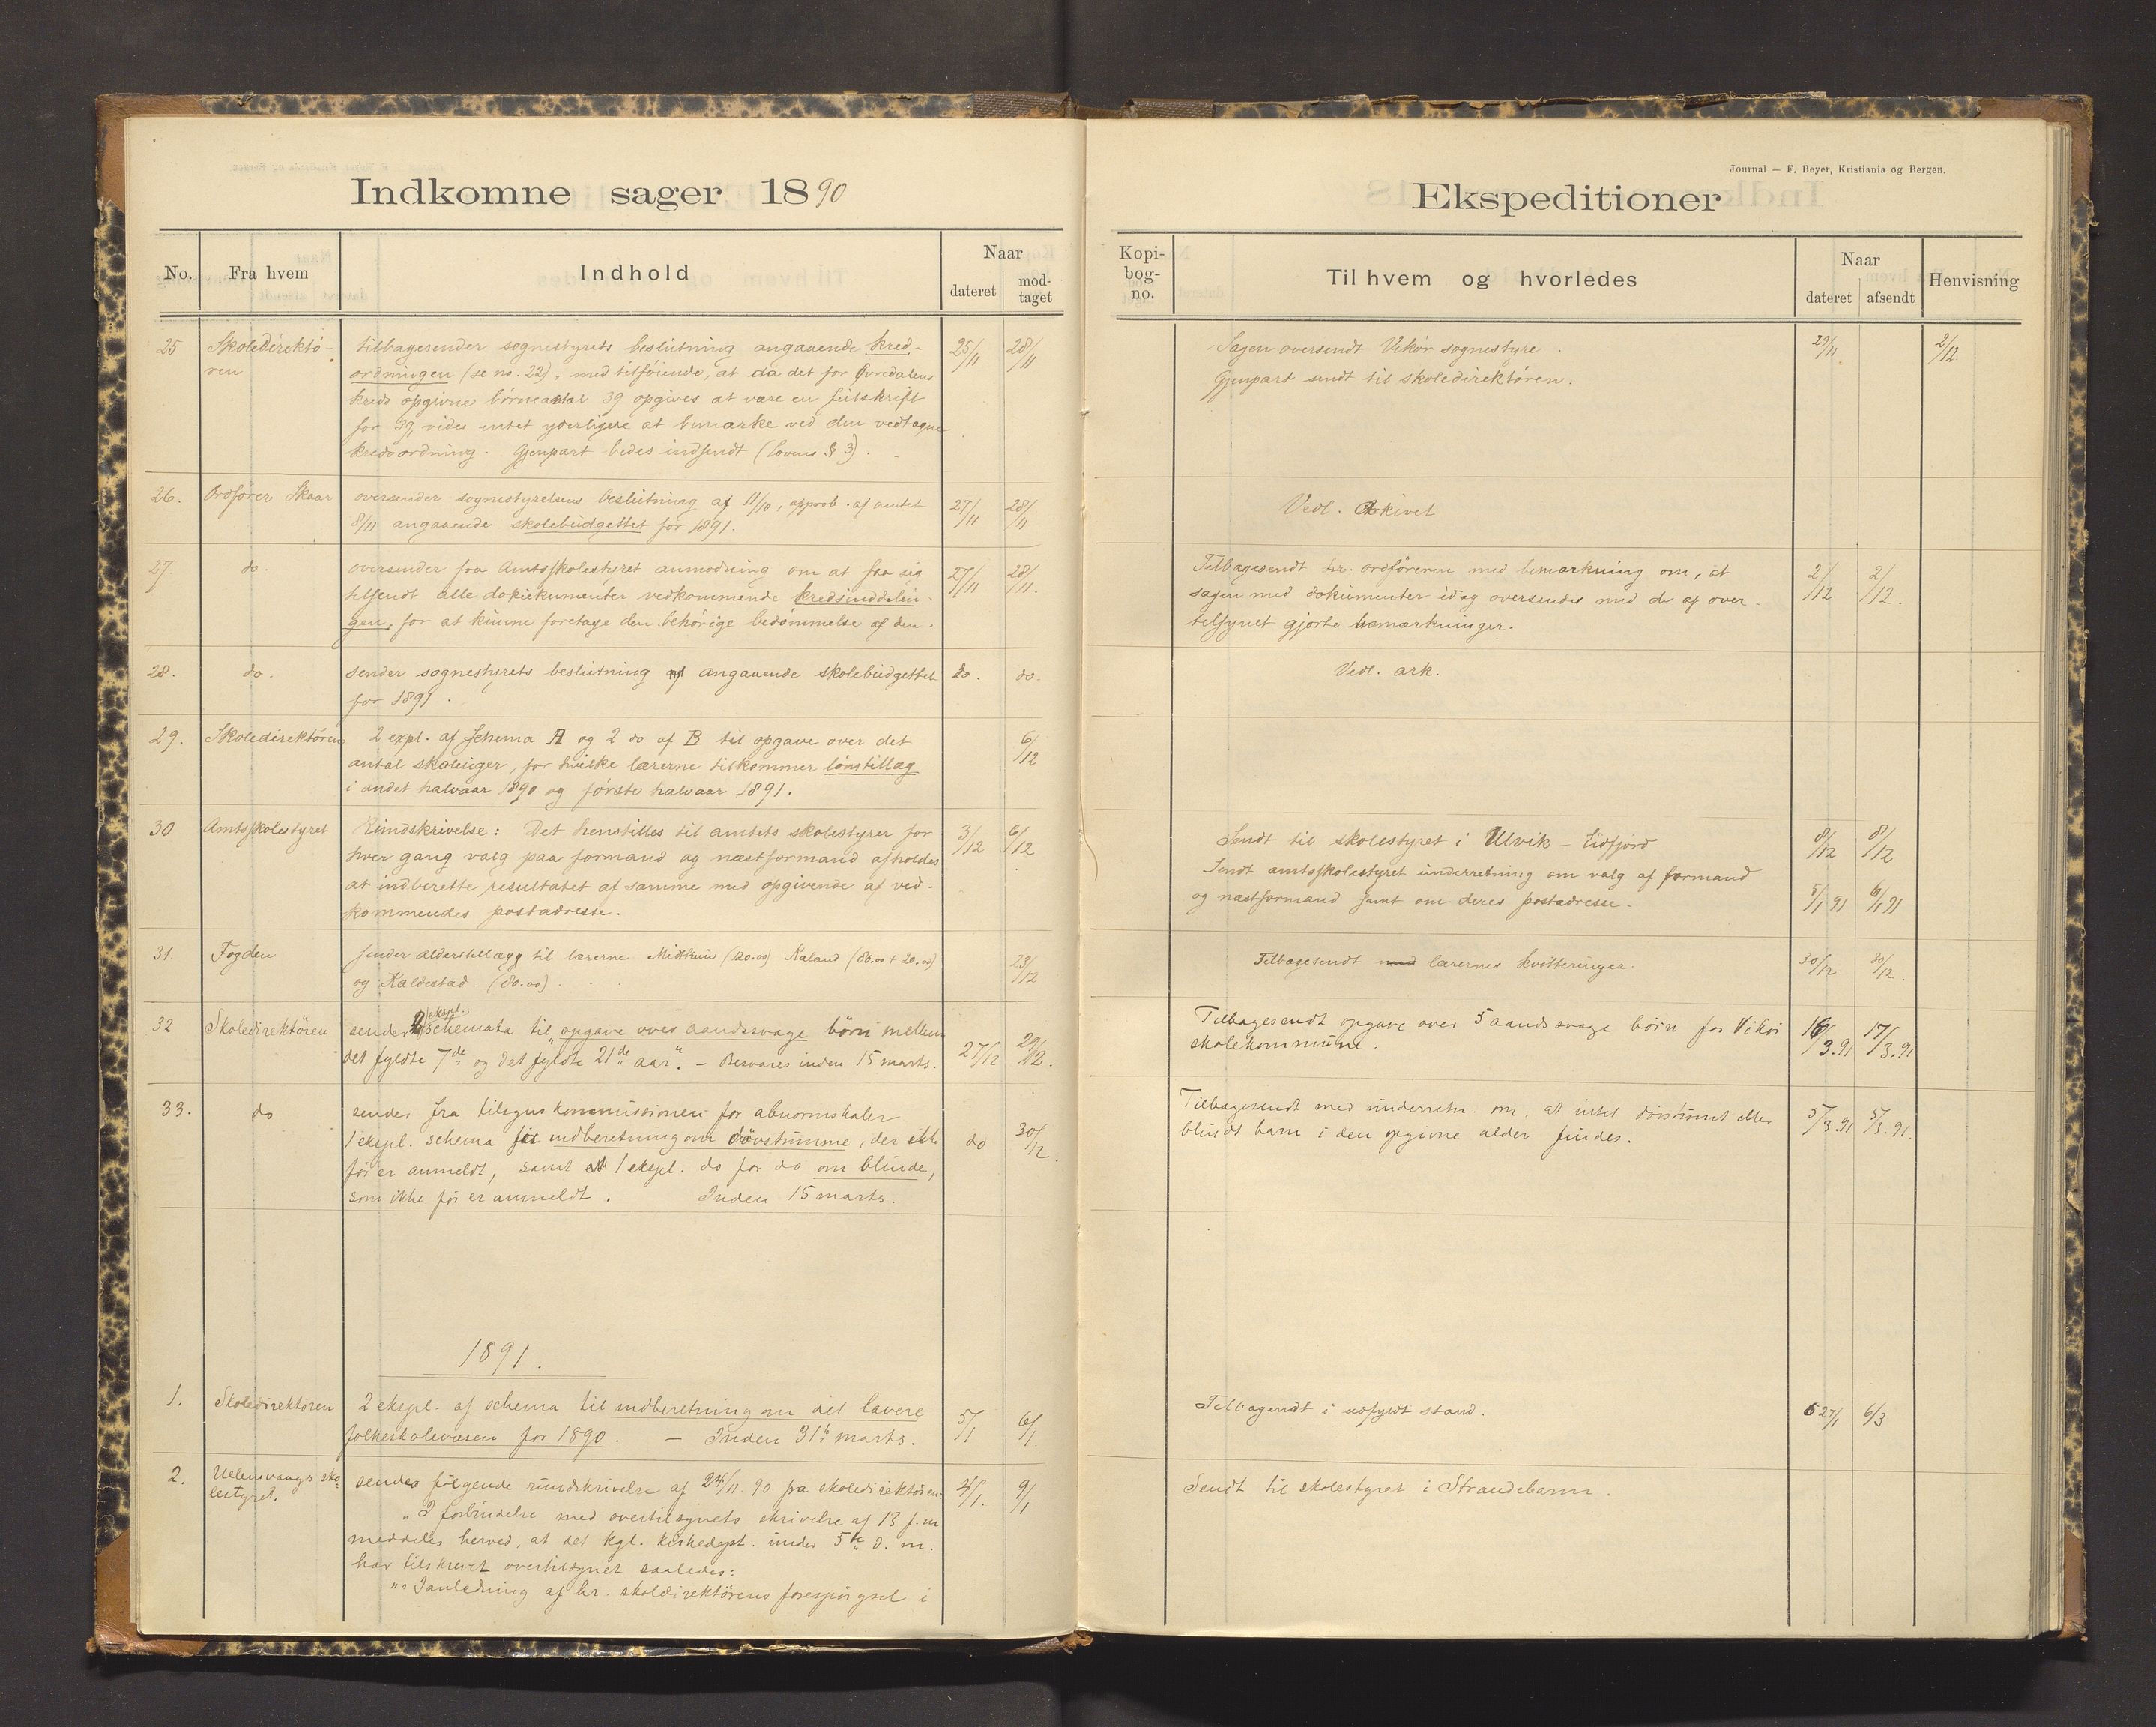 Indkomne sager 1890
No.
Fra hvem
Indhold
Naar
dateret
mod-
taget
25
Skoledirektö-
ren
tilbagesender sognestyrets beslutning angaaende kred-
ordningen (se no. 22), med tilføiende, at da det for Øvredalens
kreds opgivne börneantal 39 opgives at være en feilskrift
for 37, vides intet yderligere at bemærke ved den vedtagne
kredsordning. Gjenpart bedes indsendt (lovens § 3).
25/11
28/11
26.
Ordfører Skaar
oversender sognestyrelsens beslutning af 11/10, approb. af amtet
8/11 angaaende skolebudgettet for 1891.
27/11
28/11
27.
do.
oversender fra Amtsskolestyret anmodning om at faa sig
tilsendt alle dokukumenter vedkommende kredsinddelin-
gen, for at kunne foretage den behörige bedömmelse af den.
27/11
28/11.
28.
do.
sender sognestyrets beslutning angaaende skolebudgettet
for 1891.
do.
do.
29.
Skoledirektören
2 expl. af Schema A og 2 do af B til opgave over det
antal skoleuger, for hvilke lærerne tilkommer lönstillæg
i andet halvaar 1890 og förste halvaar 1891.
6/12
30
Amtsskolestyret
Rundskrivelse: Det henstilles til amtets skolestyrer for
hver gang valg paa formand og næstformand afholdes
at indberette resultatet af samme med opgivende af ved-
kommendes postadresse.
3/12
6/12
31.
Fogden
sender alderstillæg til lærerne Midthun (120.00) Kaland (80.00 + 20.00)
og Kaldestad. (80.00).
23/12
32
Skoledirektören
ekspl.
sender schemata til „opgave over aandssvage börn mellem
det fyldte 7de og det fyldte 21de aar". – Besvares inden 15 marts.
27/12
29/12.
33.
do
sender fra tilsynskommissionen for abnormskoler
1 ekspl. schema til indberetning om dövstumme, der ikke
för er anmeldt, samt 1 ekspl. do for do om blinde,
som ikke för er anmeldt. Inden 15 marts.
do
30/12.
1891.
1.
Skoledirektören
2 ekspl. af schema til indberetning om det lavere
folkeskolevæsen for 1890. – Inden 31te marts.
5/1
6/1.
2.
Ullensvangs sko-
lestyret.
sender fölgende rundskrivelse af 24/11 90 fra skoledirektören:
„I forbindelse med overtilsynets skrivelse af 13 f.m
meddeles herved, at det kgl. kirkedept. under 5te d. m.
har tilskrevet overtilsynet saaledes:
„„I anledning af hr. skoledirektörens forespörgsel i
4/1.
9/1
Journal — F. Beyer, Kristiania og Bergen.
Ekspeditioner
Kopi-
bog-
no.
Til hvem og hvorledes
Naar
dateret
afsendt
Henvisning
Sagen oversendt Vikör sognestyre.
Gjenpart sendt til skoledirektören.
29/11
2/12.
Vedl. Arkivet
Tilbagesendt hr. ordföreren med bemærkning om, at
sagen med dokumenter idag oversendes med de af over-
tilsynet gjorte bemærkninger.
2/12
2/12.
Vedl. ark.
Sendt til skolestyret i Ulvik – Eidfjord
8/12
8/12
Sendt amtsskolestyret underretning om valg af formand
og næstformand samt om deres postadresse.
5/1 91
6/1 91
Tilbagesendt lærernes kvitteringer.
30/12
30/12.
Tilbagesendt opgave over 5 aandssvage börn for Vikör
skolekommune.
16/3.91
17/3.91
Tilbagesendt med underretn. om, at intet dövstumt eller
blindt barn i den opgivne alder findes.
5/3.91
5/3.91.
Tilbagesendt i udfyldt stand.
27/1
6/3
Sendt til skolestyret i Strandebarm.